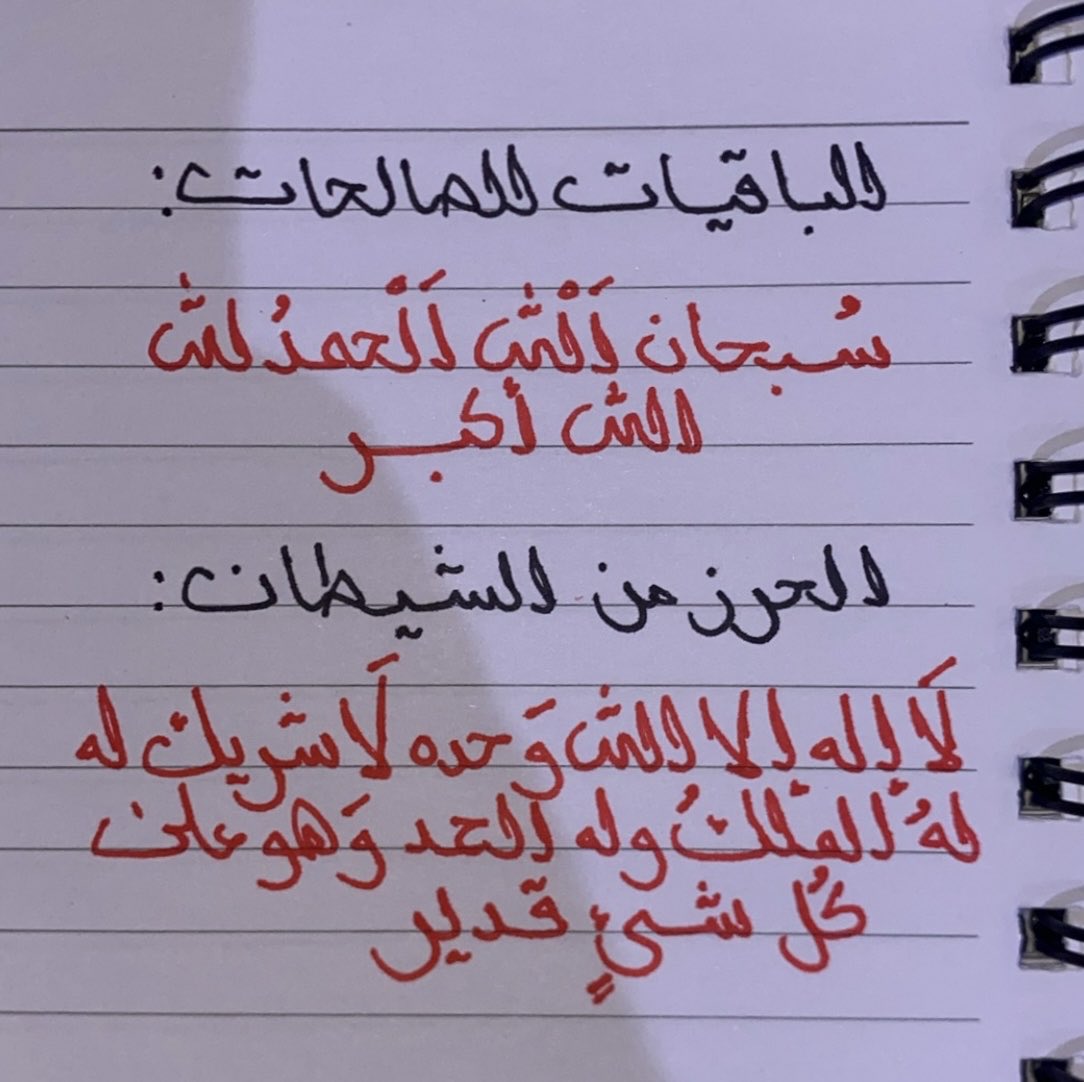 الباقيات الصالحات:
سُبحان اَلْلّٰه اَلْحمدُ لله
الله أكبر
الحرز من الشيطان:
لَا إله إلا الله وَحده لَا شريك له
لهُ المْلكُ وله الحمد وَهو على
كُل شيءٍ قدير